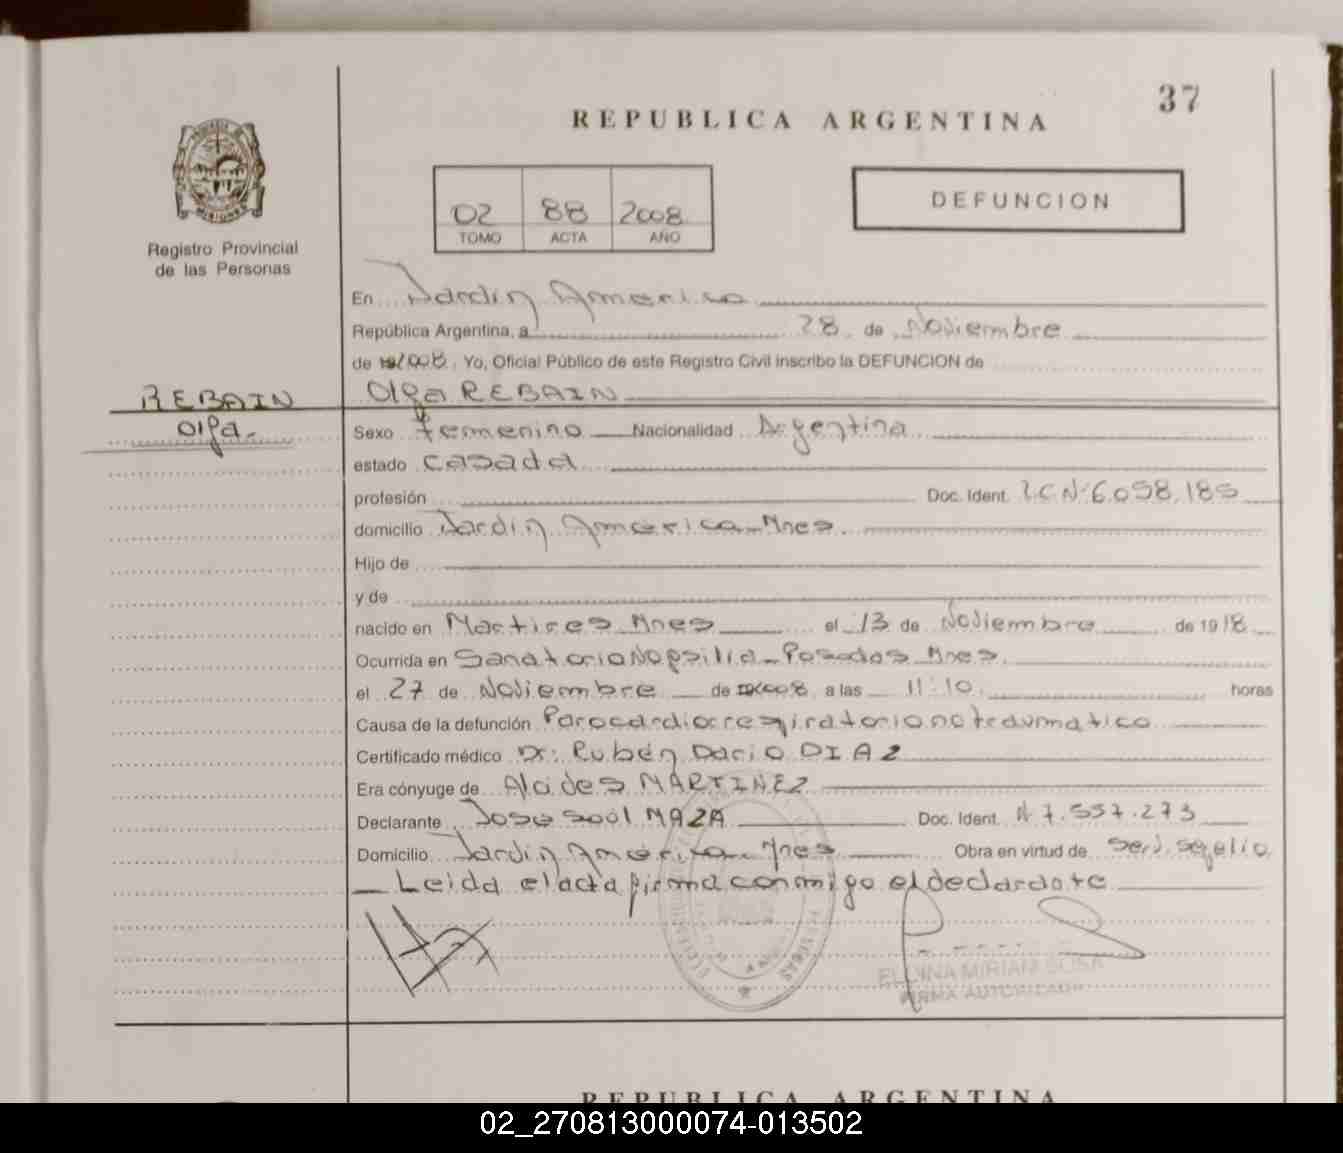 37
REPUBLICA ARGENTINA
DEFUNCION
02 88 2008
TOMO ACTA AÑO
Registro Provincial
de las Personas
MISIONES
En Jardín America
República Argentina, a 28 de Noviembre
de 2008. Yo, Oficial Público de este Registro Civil inscribo la DEFUNCION de
REBAIN
Olga REBAIN
Olga.
Sexo femenino Nacionalidad Argentina
estado casada
profesión Doc. Ident. L.C Nº 6.058.185
domicilio Jardín America - Mnes.
Hijo de
y de
nacido en Martires Mnes el 13 de Noviembre de 1918
Ocurrida en Sanatorio - Posadas Mnes.
el 27 de Noviembre de 2008 a las 11:10 horas
Causa de la defunción Parocardiorrespiratorio no traumatico
Certificado médico Dr: Rubén Dario DIAZ
Era cónyuge de Alcides MARTINEZ
Declarante Jose MAZA Doc. Ident. Nº 7.557.273
Domicilio Jardín America - Mnes Obra en virtud de Serv. Sepelio
Leida el acta firma conmigo el declarante
MIRIAM
FIRMA AUTORIZADA
REPUBLICA ARGENTINA
02_270813000074-013502